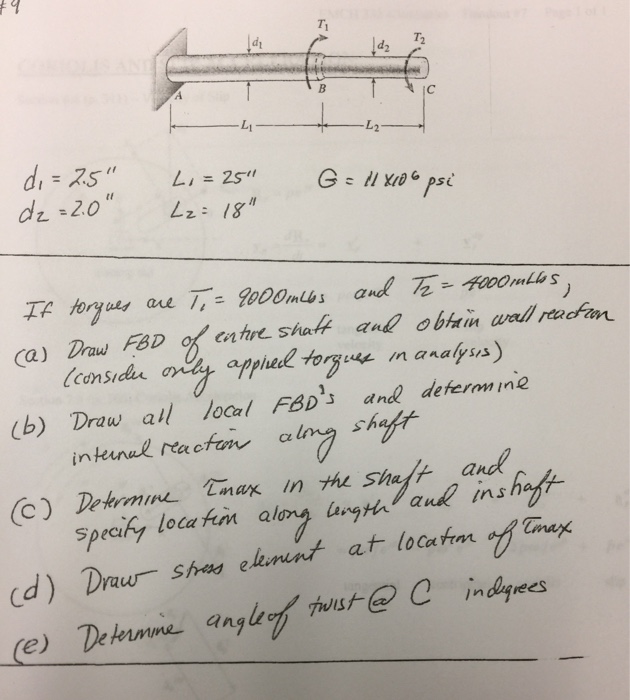 #9
T₁
d₁
d₂
T₂
A
B
C
L₁
L₂
d₁ = 2.5" L₁ = 25" G = 11 x10⁶ psi
d₂ = 2.0" L₂ = 18"
If torques are T₁ = 9000 in Lbs and T₂ = 4000 in Lbs,
(a) Draw FBD of entire shaft and obtain wall reaction
(consider only applied torques in analysis)
(b) Draw all local FBD's and determine
internal reaction along shaft
(c) Determine τmax in the shaft and
specify location along length and in shaft
(d) Draw stress element at location of τmax
(e) Determine angle of twist @ C in degrees